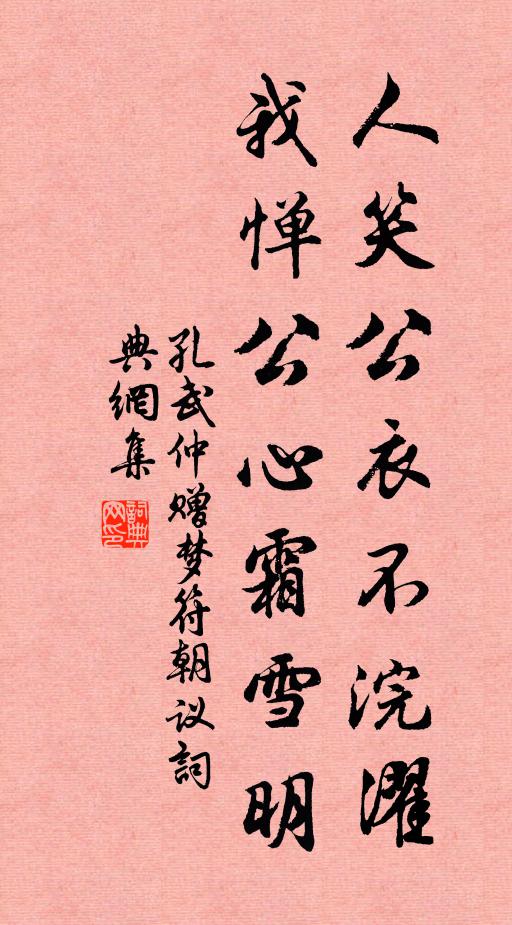 人笑公衣不浣濯
我惮公心霜雪明
孔武仲赠梦符朝议詞
典網集
詞典网印